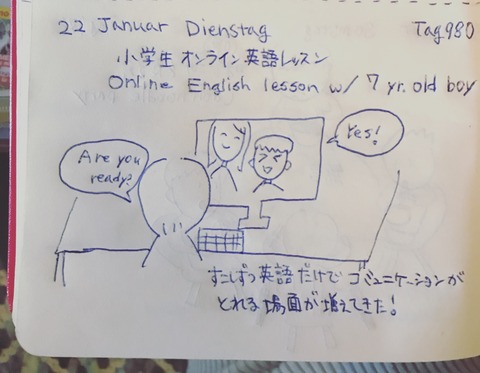 22 Januar Dienstag Tag980
小学生オンライン英語レッスン
Online English lesson w/ 7 yr. old boy
Are you
ready?
Yes!
すこしずつ英語だけでコミュニケーションが
とれる場面が増えてきた!